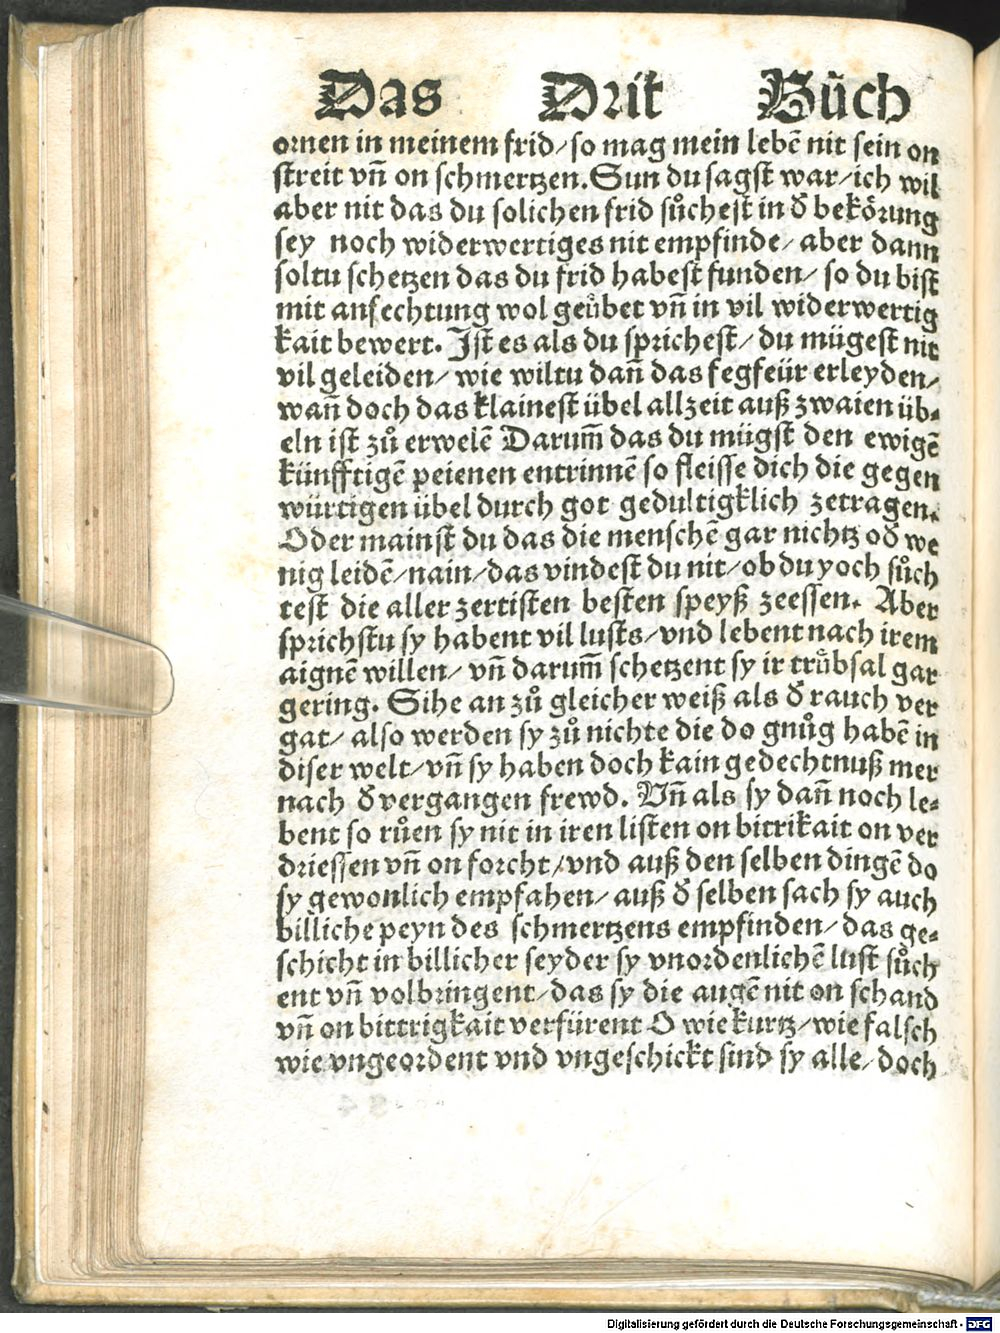 Das Drit Bůch
ornen in meinem frid/so mag mein lebē nit sein on
streit vñ on schmertzen. Sun du sagst war/ich wil
aber nit das du solichen frid sůchest in ð bekörung
sey noch widerwertiges nit empfinde/ aber dann
soltu schetzen das du frid habest funden/ so du bist
mit anfechtung wol geůbet vñ in vil widerwertig
kait bewert. Jst es als du sprichest/ du mügest nit
vil geleiden/ wie wiltu dañ das fegfeür erleyden/
wañ doch das klainest übel allzeit auß zwaien üb⸗
eln ist zů erwelē Darum̄ das du mügst den ewigē
künfftigē peienen entrinnē so fleisse dich die gegen
würtigen übel durch got gedultigklich zetragen.
Oder mainst du das die menschē gar nichtz oð we
nig leidē/nain/das vindest du nit/ob du yoch sůch
test die aller zertisten besten speyß zeessen. Aber
sprichstu sy habent vil lusts/vnd lebent nach irem
aignē willen/ vñ darum̄ schetzent sy ir trůbsal gar
gering. Sihe an zů gleicher weiß als ð rauch ver
gat/ also werden sy zů nichte die do gnůg habē in
diser welt/vñ sy haben doch kain gedechtnuß mer
nach ð vergangen frewd. Vñ als sy dañ noch le⸗
bent so růen sy nit in iren listen on bitrikait on ver
driessen vñ on forcht/vnd auß den selben dingē do
sy gewonlich empfahen/ auß ð selben sach sy auch
billiche peyn des schmertzens empfinden/ das ge⸗
schicht in billicher seyder sy vnordenlichē lust sůch
ent vñ volbringent/das sy die augē nit on schand
vñ on bittrigkait verfürent O wie kurtz/wie falsch
wie vngeordent vnd vngeschickt sind sy alle/ doch
Digitalisierung gefördert durch die Deutsche Forschungsgemeinschaft - DFG